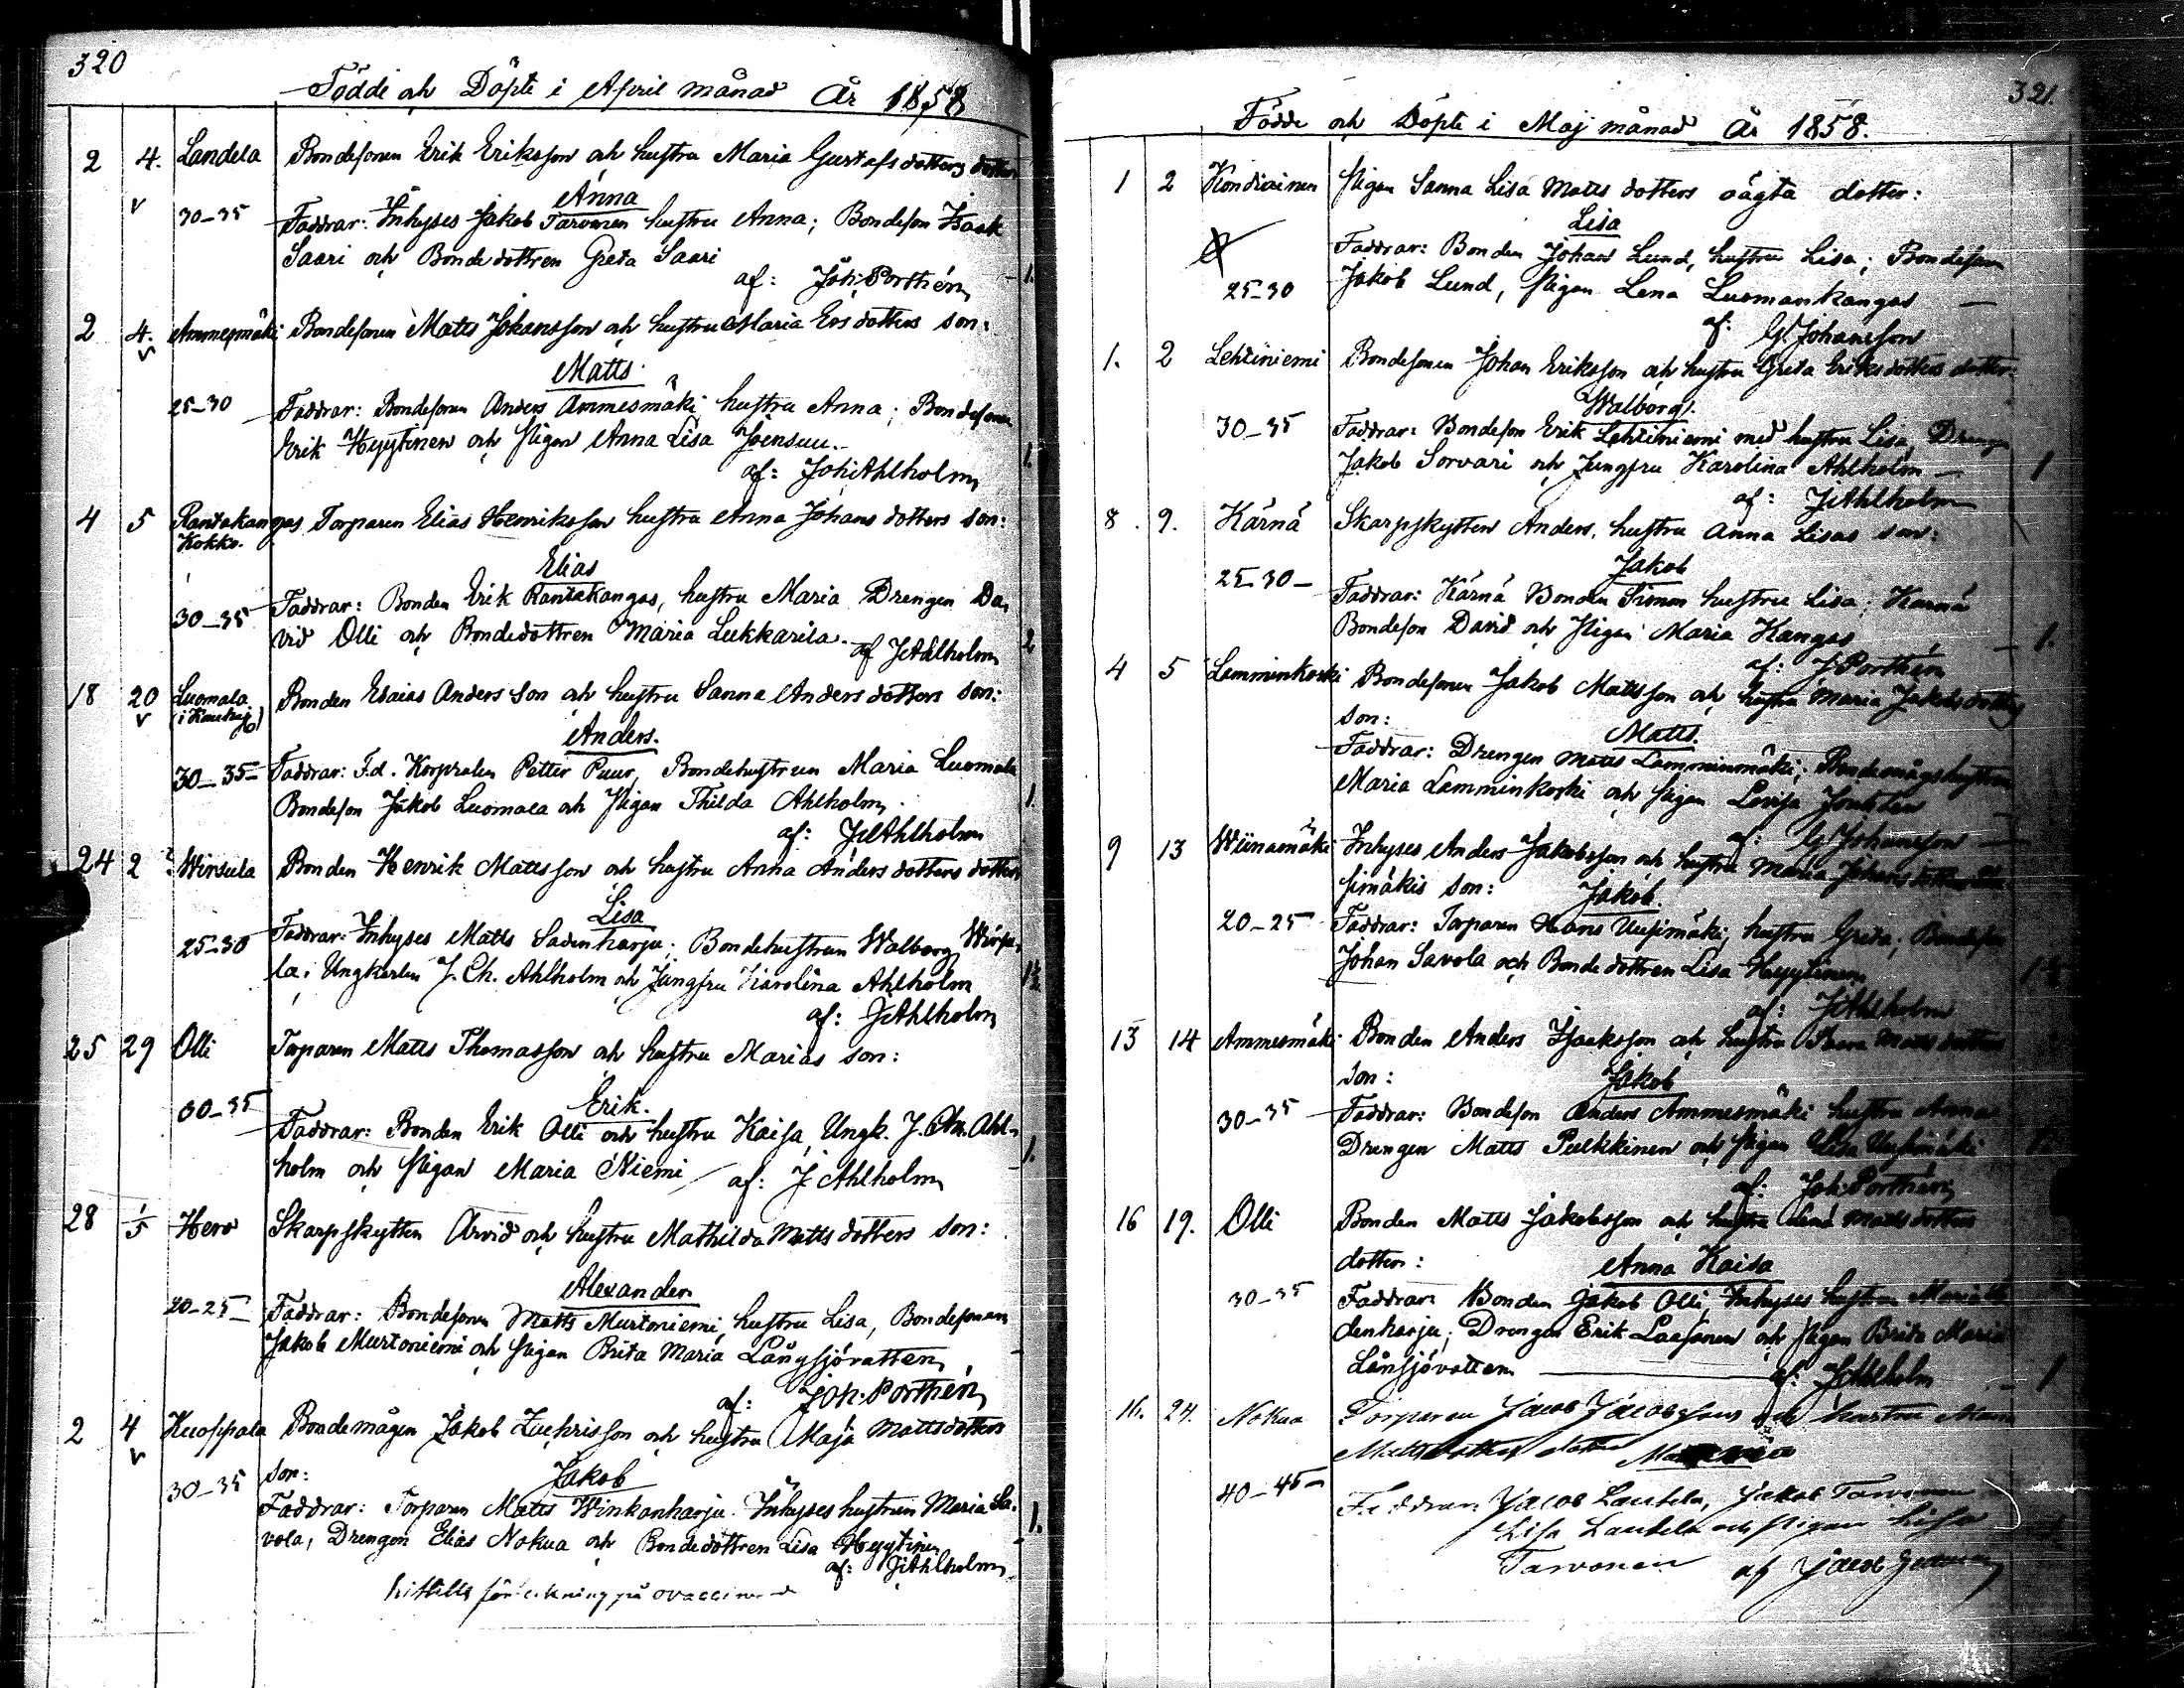 320
Födde och Döpte i April månad År 1858
2 4. Landela Bondesonen Erik Eriksson och hustru Maria Gustafsdotters dotter
Anna
v 30-35 Faddrar: Inhyses Jakob Tarvonen hustru Anna; Bondeson Isaak
Saari och Bondedottren Greta Saari
af: Joh: Porthén 1.
2 4. v Ammesmäki Bondesonen Matts Johansson och hustru Maria Ersdotters son:
Matts
25-30 Faddrar: Bondesonen Anders Ammesmäki, hustru Anna; Bondesonen
Erik Hyytinen och Pigan Anna Lisa Joensuu. 1.
af: Joh: Ahlholm
4 5 Rantakangas Torparen Elias Henriksson hustru Anna Johans dotters son:
Kokko.
Elias
30-35 Faddrar: Bonden Erik Rantakangas, hustru Maria Drengen Da-
vid Olli och Bondedottren Maria Lukkarila. 2
af J Ahlholm
18 20 v Luomala Bonden Esaias Anders son och hustru Sanna Anders dotters son:
Anders.
30-35 Faddrar: F.d. Korpralen Petter Puur, Bondehustrun Maria Luomala
Bondeson Jakob Luomala och Pigan Thilda Ahlholm. 1
af: J Ahlholm
24 2 Wirsula Bonden Henrik Mattsson och hustru Anna Anders dotters dotter
Lisa
25-30 Faddrar: Inhyses Matts Sadenharju; Bondehustrun Walborg Wirsu-
la; Ungkarlen J. Ch. Ahlholm och Jungfru Karolina Ahlholm 1½
af: J Ahlholm
25 29 Olli Torparen Matts Thomasson och hustru Marias son:
Erik.
30-35 Faddrar: Bonden Erik Olli och hustru Kaisa, Ungk. J. Chr. Ahl-
holm och Pigan Maria Niemi af: J Ahlholm 1.
28 1/5 Hero Skarpskytten Arvid och hustru Mathilda Matts dotters son:
Alexander
20-25 Faddrar: Bondesonen Matts Murtoniemi, hustru Lisa, Bondesonen
Jakob Murtoniemi och Pigan Brita Maria Långsjövatten
af: Joh: Porthén
2 4 v Kuoppala Bondemågen Jakob Zachrisson och hustru Maja Mattsdotters
son: Jakob
30-35 Faddrar: Torparen Matts Winkanharju Inhyses hustrun Maria Sa-
vola, Drengen Elias Nokua och Bondedottren Lisa Hyytinen 1.
af: J Ahlholm
hittills förteckning på ovaccinerade
321.
Födde och Döpte i Maj månad År 1858.
1 2 Kondiainen Pigan Sanna Lisa Matts dotters oägta dotter:
Lisa
Faddrar: Bonden Johan Lund, hustru Lisa; Bondeson
25-30 Jakob Lund, Pigan Lena Luomankangas
af: G. Johansson
1. 2 Lehtiniemi Bondesonen Johan Eriksson och hustru Greta Eriksdotters dotter:
Walborg.
30-35 Faddrar: Bondeson Erik Lehtiniemi med hustru Lisa, Drengen
Jakob Sorvari och Jungfru Karolina Ahlholm 1
af: J Ahlholm
8. 9. Kärnä Skarpskytten Anders, hustru Anna Lisas son:
Jakob
25-30 Faddrar: Kärnä Bonden Simon hustru Lisa; Kärnä
Bondeson David och Pigan Maria Kangas 1.
af: J Porthén
4 5 Lamminkoski Bondesonen Jakob Mattsson och hustru Maria Jakobsdotters
son: Matts.
Faddrar: Drengen Matts Lamminmäki, Bondemågshustrun
Maria Lamminkoski och Pigan Lovisa
af: G. Johansson
9 13 Wiinamäki Inhyses Anders Jakobsson och hustru Maria Johansdotter
simäkis son: Jakob.
20-25 Faddrar: Torparen Hans Uusimäki, hustru Greta; Bondeson
Johan Savola och Bondedottren Lisa Hyytinen
af: J Ahlholm
13 14 Ammesmäki Bonden Anders Isaksson och hustru Matts dotters
son: Jakob
30-35 Faddrar: Bondeson Anders Ammesmäki hustru Anna
Drengen Matts Pulkkinen och Pigan Lisa Uusimäki
af: Joh: Porthén
16 19. Olli Bonden Matts Jakobsson och hustru Lena Matts dotters
dotter: Anna Kaisa
30-35 Faddrar: Bonden Jakob Olli, Inhyses hustrun Maria Sa-
denharju; Drengen Erik Laasanen och Pigan Brita Maria
Långsjövatten af: J Ahlholm 1
16. 24. Nokua Torparen Jacob Jacobssons och hustru
Mattsdotters dotter Maria
40-45 Faddrar: Jacob Lantela, Jakob Tarvonen
Lisa Lantela och Pigan Lisa
Tarvonen af Jacob